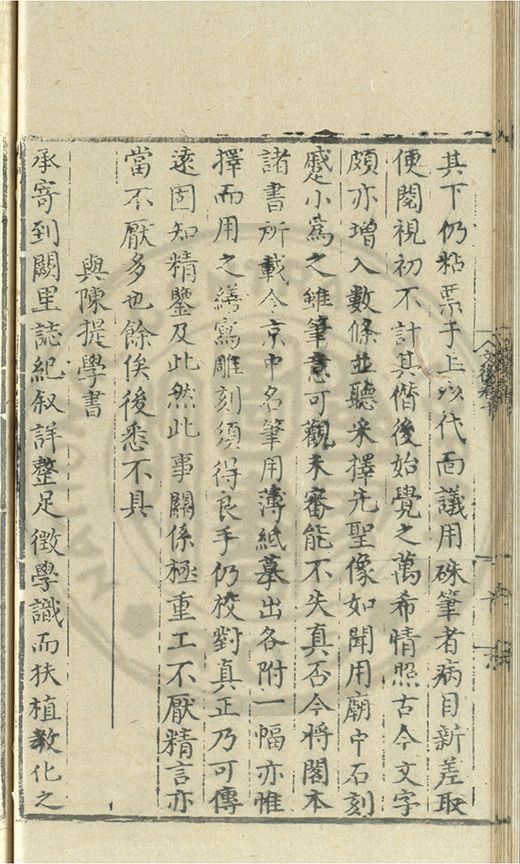 其下仍粘票于上以代面議用硃筆者病目新差取
便閱視初不計其僭後始覺之萬希情照古今文字
頗亦增入數條並聽采擇先聖像如聞用廟中石刻
蹙小寫之雖筆意可觀未審能不失真否今將閣本
諸書所載令京中名筆用薄紙摹出各附一幅亦惟
擇而用之繕寫雕刻須得良手仍校對真正乃可傳
遠固知精鑒及此然此事關係極重工不厭精言亦
當不厭多也餘俟後悉不具
與陳提學書
承寄到闕里誌紀叙詳整足徵學識而扶植教化之